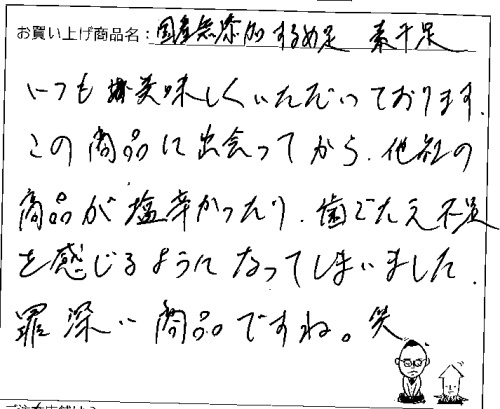 お買い上げ商品名：国産無添加するめ足 素干足
いつも美味しくいただいております。
この商品に出会ってから、他社の
商品が塩辛かったり、歯ごたえ不足
を感じるようになってしまいました。
罪深い商品ですね。笑